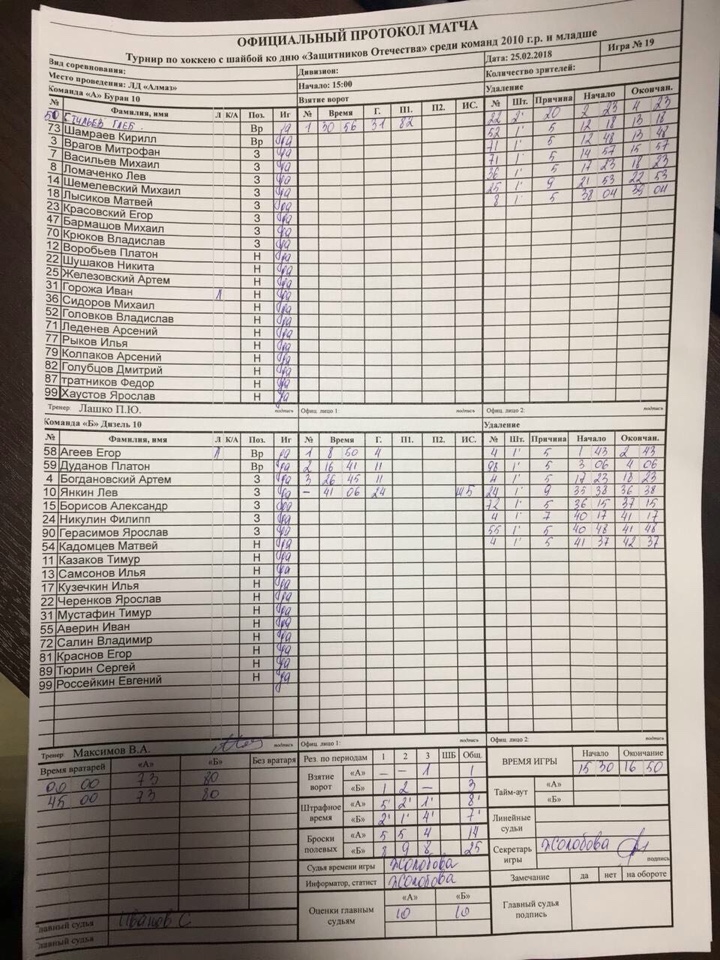 ОФИЦИАЛЬНЫЙ ПРОТОКОЛ МАТЧА
Турнир по хоккею с шайбой ко дню «Защитников Отечества» среди команд 2010 г.р. и младше
Вид соревнования: Дивизион: Дата: 25.02.2018 Игра № 19
Место проведения: ЛД «Алмаз» Начало: 15:00 Количество зрителей:
Команда «А» Буран 10 Взятие ворот Удаление
№ Фамилия, имя Л К/А Поз. Иг № Время Г. П1. П2. ИС. № Шт. Причина Начало Окончан.
50 Глеб Вр 1 30 56 31 82 22 2' 20 2 23 4 23
73 Шамраев Кирилл Вр 52 1' 5 12 18 13 18
3 Врагов Митрофан З 71 1' 5 12 48 13 48
7 Васильев Михаил З 71 1' 5 14 57 15 57
8 Ломаченко Лев З 36 1' 5 17 23 18 23
14 Шемелевский Михаил З 25 1' 9 21 53 22 53
18 Лысиков Матвей З 8 1' 5 38 04 39 04
23 Красовский Егор З
47 Бармашов Михаил З
70 Крюков Владислав З
12 Воробьев Платон Н
22 Шушаков Никита Н
25 Железовский Артем Н
31 Горожа Иван Л Н
36 Сидоров Михаил Н
52 Головков Владислав Н
71 Леденев Арсений Н
77 Рыков Илья Н
79 Колпаков Арсений Н
82 Голубцов Дмитрий Н
87 тратников Федор Н
99 Хаустов Ярослав Н
Тренер Лашко П.Ю. подпись Офиц. лицо 1: подпись Офиц. лицо 2: подпись
Команда «Б» Дизель 10 Удаление
№ Фамилия, имя Л К/А Поз. Иг № Время Г. П1. П2. ИС. № Шт. Причина Начало Окончан.
58 Агеев Егор Л Вр 1 8 50 4 4 1' 5 1 43 2 43
59 Дуданов Платон Вр 2 16 41 11 98 1' 5 3 06 4 06
4 Богдановский Артем З 3 26 45 11 4 1' 5 17 23 18 23
10 Янкин Лев З – 41 06 24 24 1' 9 35 38 36 38
15 Борисов Александр З 72 1' 5 36 15 37 15
24 Никулин Филипп З 4 1' 7 40 17 41 17
90 Герасимов Ярослав З 55 1' 5 40 48 41 48
54 Кадомцев Матвей Н 4 1' 5 41 37 42 37
11 Казаков Тимур Н
13 Самсонов Илья Н
17 Кузечкин Илья Н
22 Черенков Ярослав Н
31 Мустафин Тимур Н
55 Аверин Иван Н
72 Салин Владимир Н
81 Краснов Егор Н
89 Тюрин Сергей Н
99 Россейкин Евгений Н
Тренер Максимов В.А. подпись Офиц. лицо 1: подпись Офиц. лицо 2: подпись
Время вратарей «А» «Б» Без вратаря Рез. по периодам 1 2 3 ШБ Общ. ВРЕМЯ ИГРЫ Начало Окончание
00 00 73 80 Взятие ворот «А» – – 1 1 15 30 16 50
45 00 73 80 «Б» 1 2 – 3 Тайм-аут «А»
«Б»
Штрафное время «А» 5' 2' 1' 8'
«Б» 2' 1' 4' 7' Линейные судьи
Броски полевых «А» 5 5 4 14
«Б» 8 9 8 25 Секретарь игры Жолобова подпись
Судья времени игры Жолобова
Информатор, статист Жолобова Замечание да нет на обороте
Оценки главным судьям «А» «Б» Главный судья подпись
10 10
лавный судья Иванов С.
лавный судья